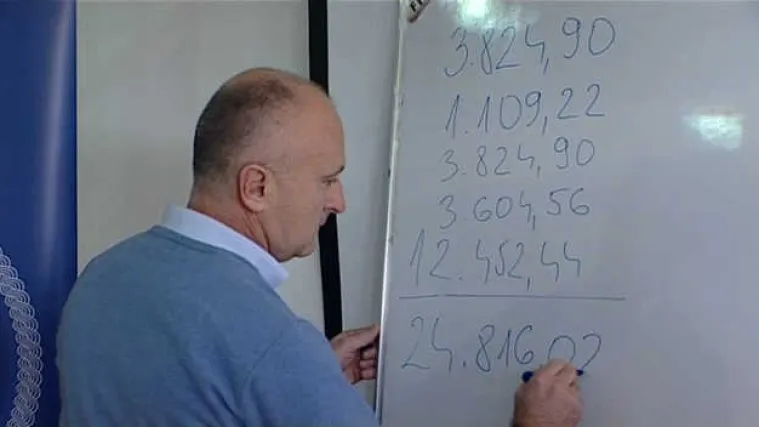 3.824,90
1.109,22
3.824,90
3.604,56
12.452,44
24.816,02